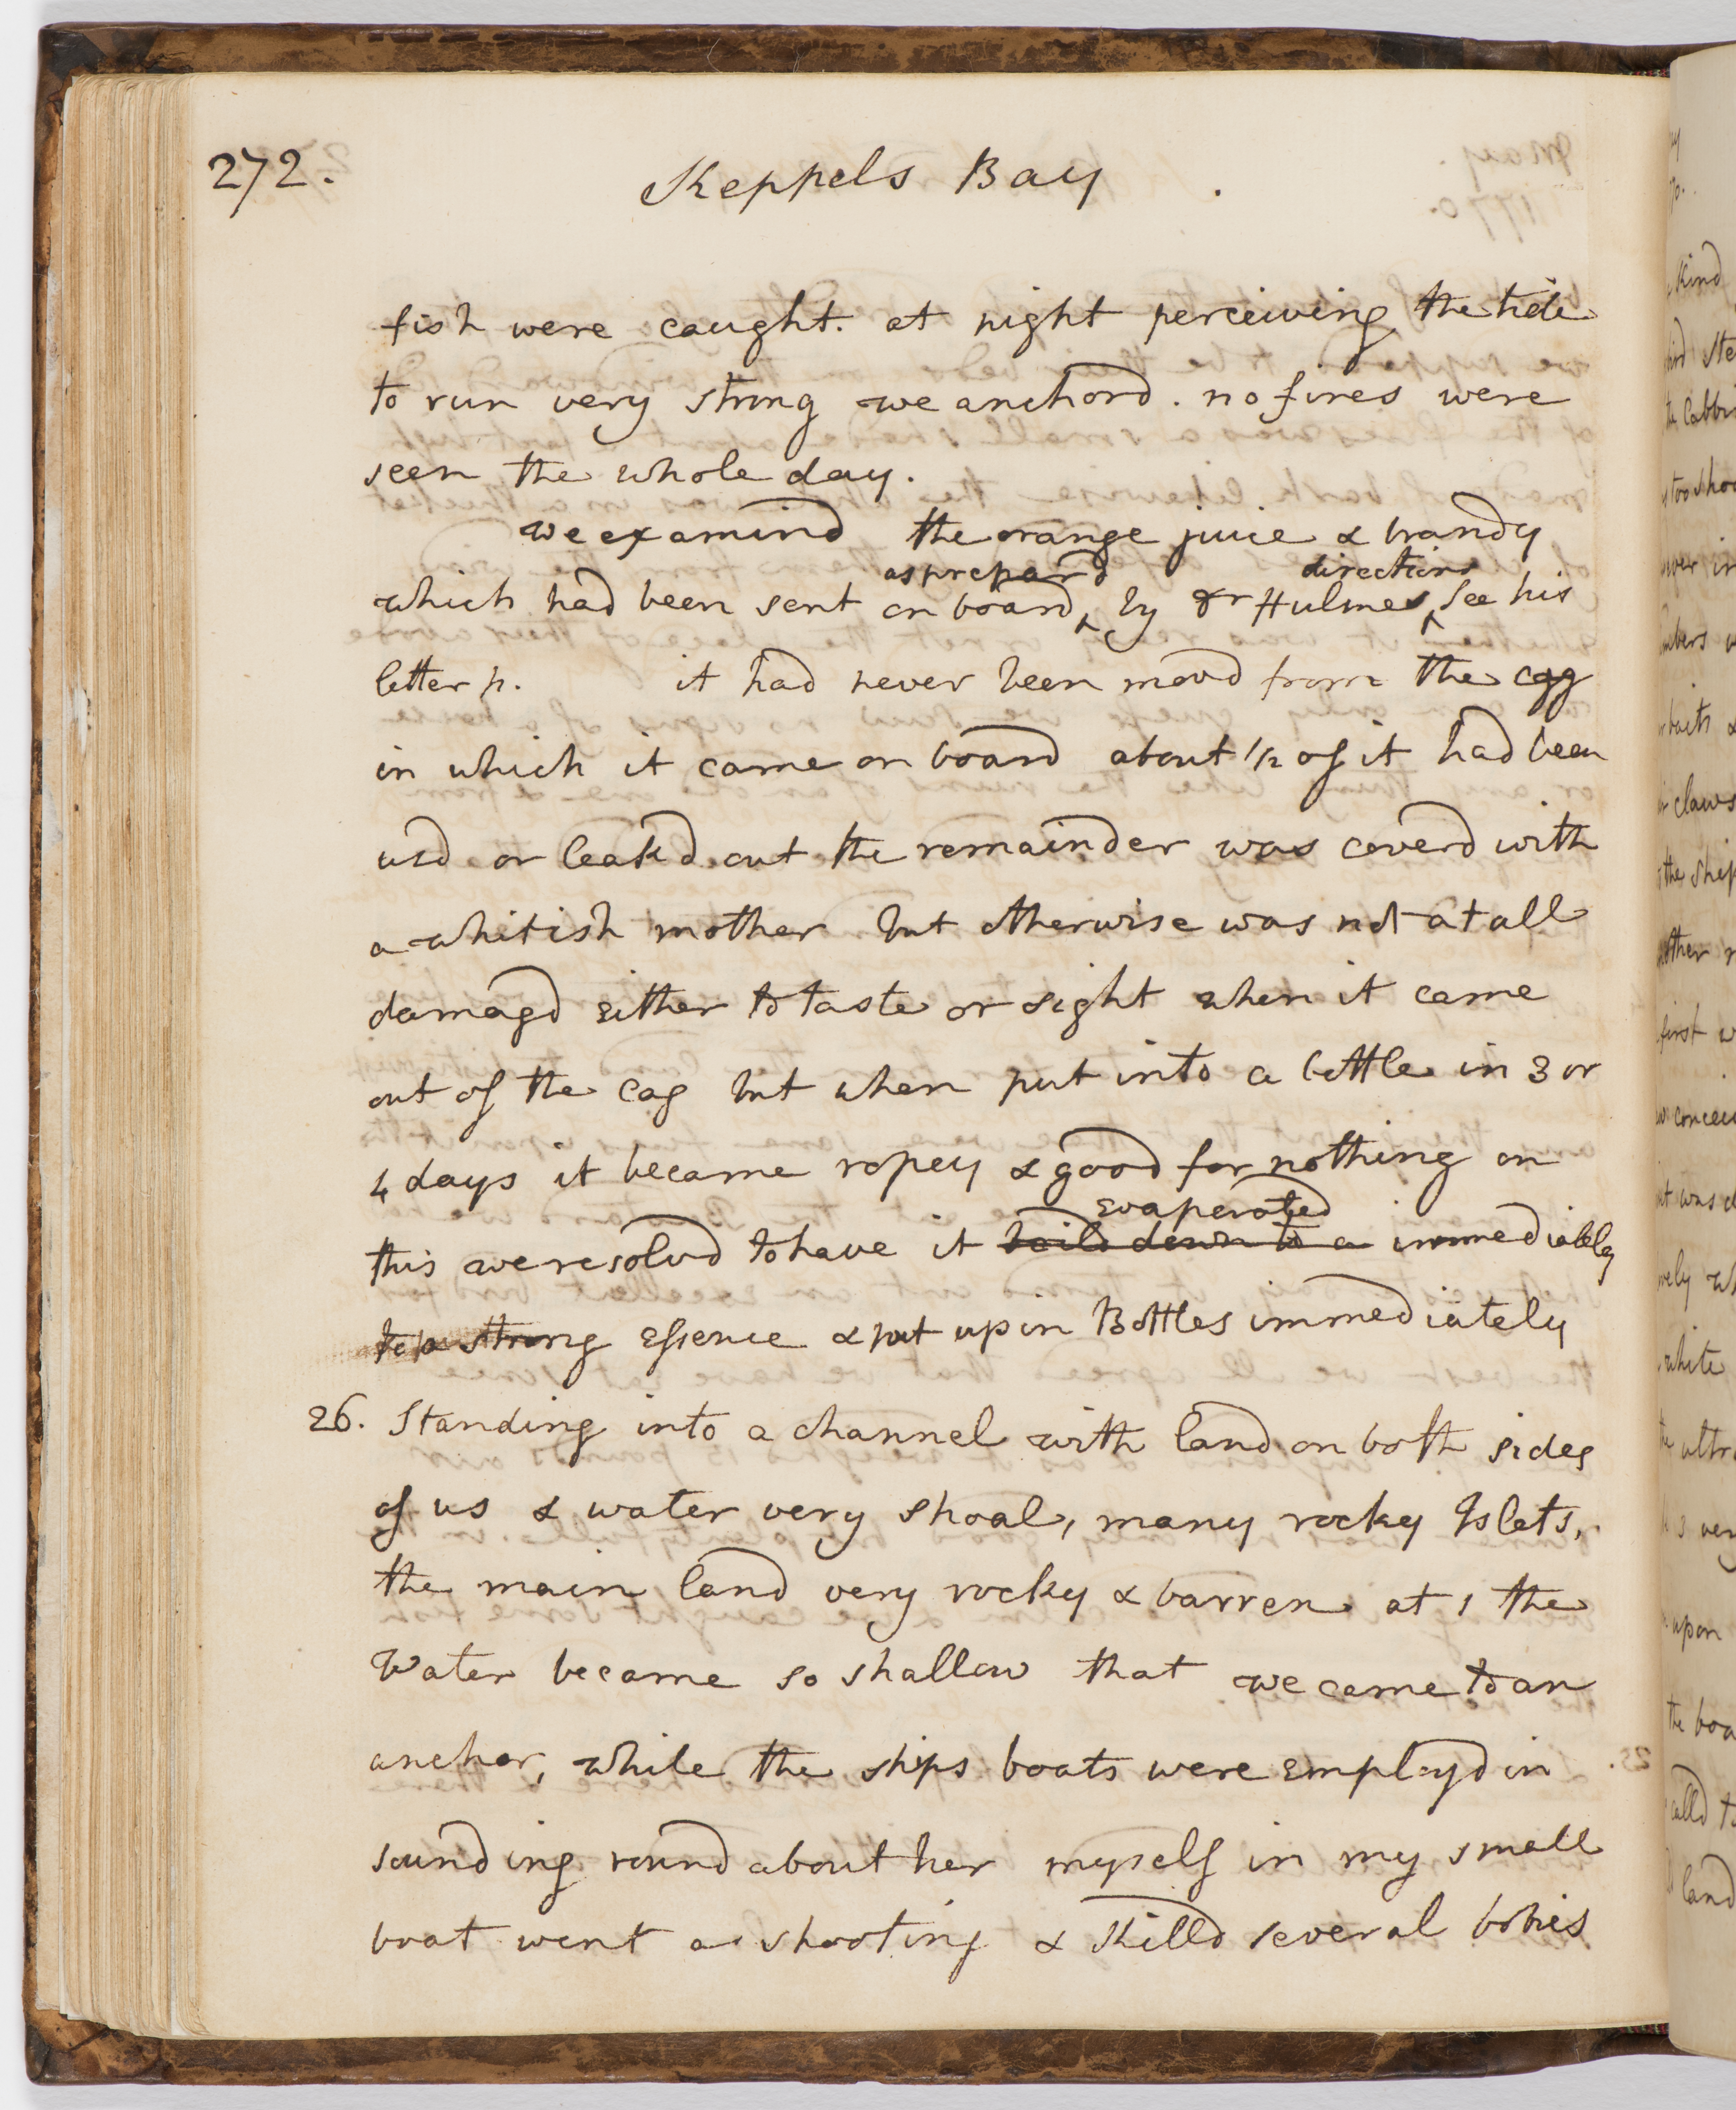 272.
Keppels Bay
fish were caught. at night perceiving the tide
to run very strong we anchord. no fires were
seen the whole day.
we examind the orange juice & brandy
as prepard directions
which had been sent on board ‸ by Dr Hulmes ‸ See his
letter p. it had never been movd from the cagg
in which it came on board about 1/2 of it had been
usd or leakd out the remainder was coverd with
a whitish mother but otherwise was not at all
damagd either to taste or sight when it came
out of the cag but when put into a bottle in 3 or
4 days it became ropey & good for nothing on
evaporated
this we resolvd to have it boild down to a immediately
to a strong essence & put up in Bottles immediately
26. Standing into a channel with land on both sides
of us & water very shoal, many rocky Islets,
the main land very rocky & barren at 1 the
Water became so shallow that we came to an
anchor, while the ships boats were employd in
sounding round about her myself in my small
boat went a shooting & killd several bobies